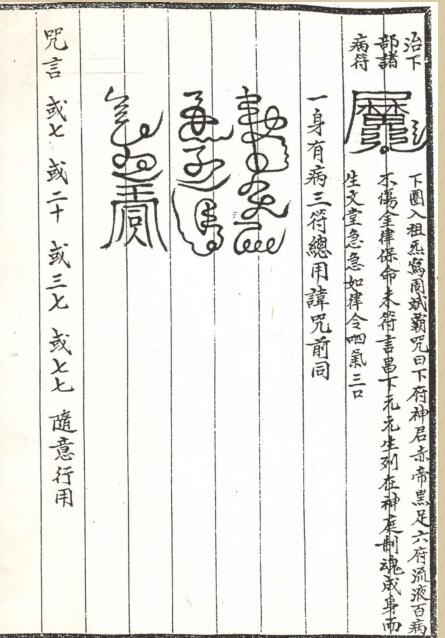 治下
部諸
病符
下圈入祖炁寫周斌霸咒曰下府神君赤帝黑足六府流液百病
不傷金律保命未符言昌下元元生列在神庭制魂成身而
生文堂急急如律令呬氣三口
一身有病三符總用諱咒前同
咒言 或七 或二十 或三七 或七七 隨意行用